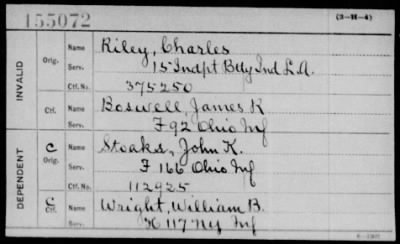 155072
(3-H-4)
Orig. Name Riley, Charles
Serv. 15 Indpt Bdty Ind L.A.
Ctf. No. 375250
INVALID
Ctf. Name Boswell, James K
Serv. F 92 Ohio Inf
C Orig. Name Stoaks, John K.
Serv. F 166 Ohio Inf
Ctf. No. 112925
DEPENDENT
C Ctf. Name Wright, William B.
Serv. H 117 Ny Inf